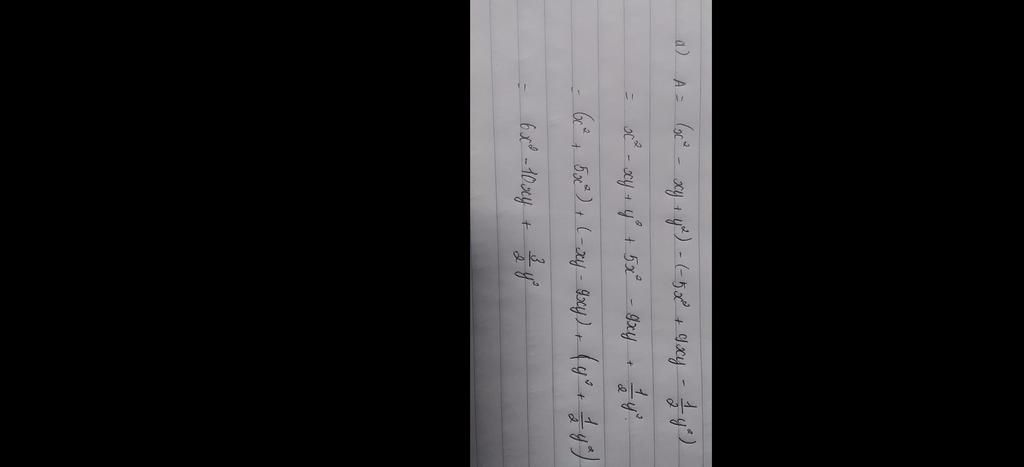 a) A = (x² - xy + y²) - (-5x² + 9xy - 1/2 y²)
= x² - xy + y² + 5x² - 9xy + 1/2 y².
= (x² + 5x²) + (-xy - 9xy) + (y² + 1/2 y²)
= 6x² - 10xy + 3/2 y²